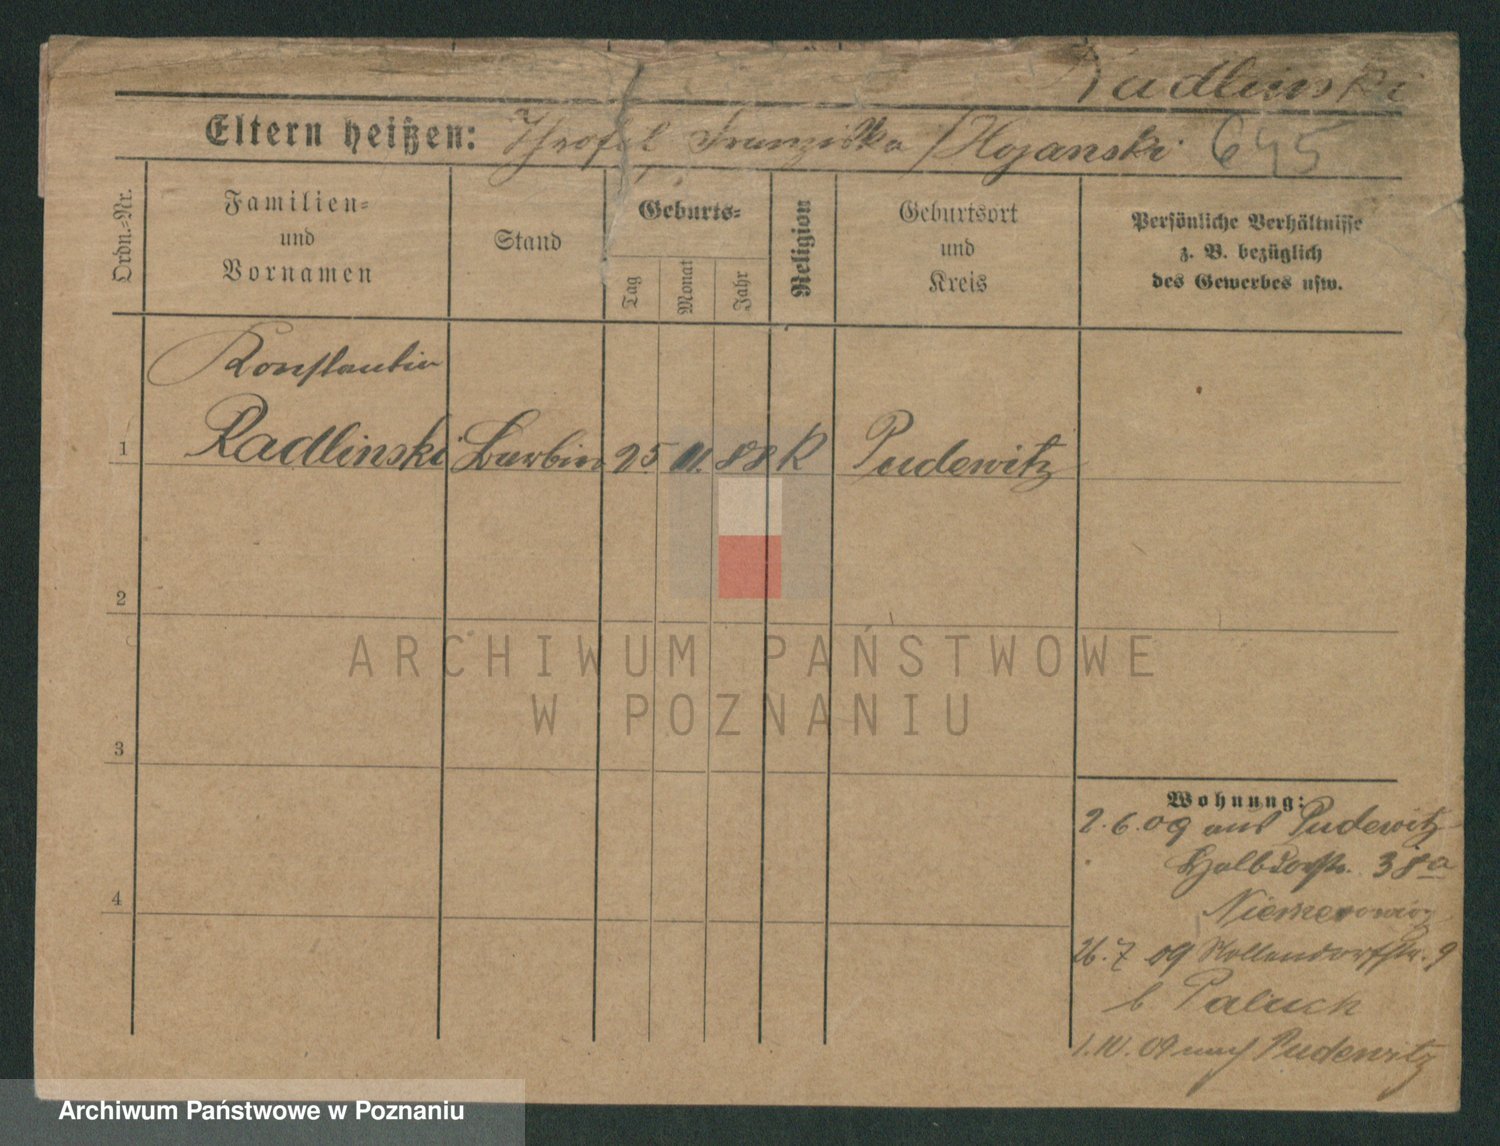 Radlinski
Eltern heißen: Franziska / Hojanski 645
Ordn.-Nr.
Familien-
und
Vornamen
Stand
Geburts-
Tag
Monat
Jahr
Religion
Geburtsort
und
Kreis
Persönliche Verhältnisse
z. B. bezüglich
des Gewerbes usw.
Konstantin
1 Radlinski Barbier 25 11. 88 K Pudewitz
2
3
4
ARCHIWUM PAŃSTWOWE
W POZNANIU
Wohnung:
2.6.09 aus Pudewitz
Halbdorfstr. 38a
26.7 09 Kollendorfstr. 9
b Paluch
1.10.09 nach Pudewitz
Archiwum Państwowe w Poznaniu